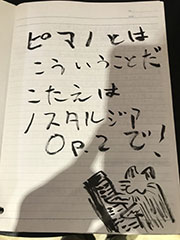 ピアノとは
こういうことだ
こたえは
ノスタルジア
Op.2で!